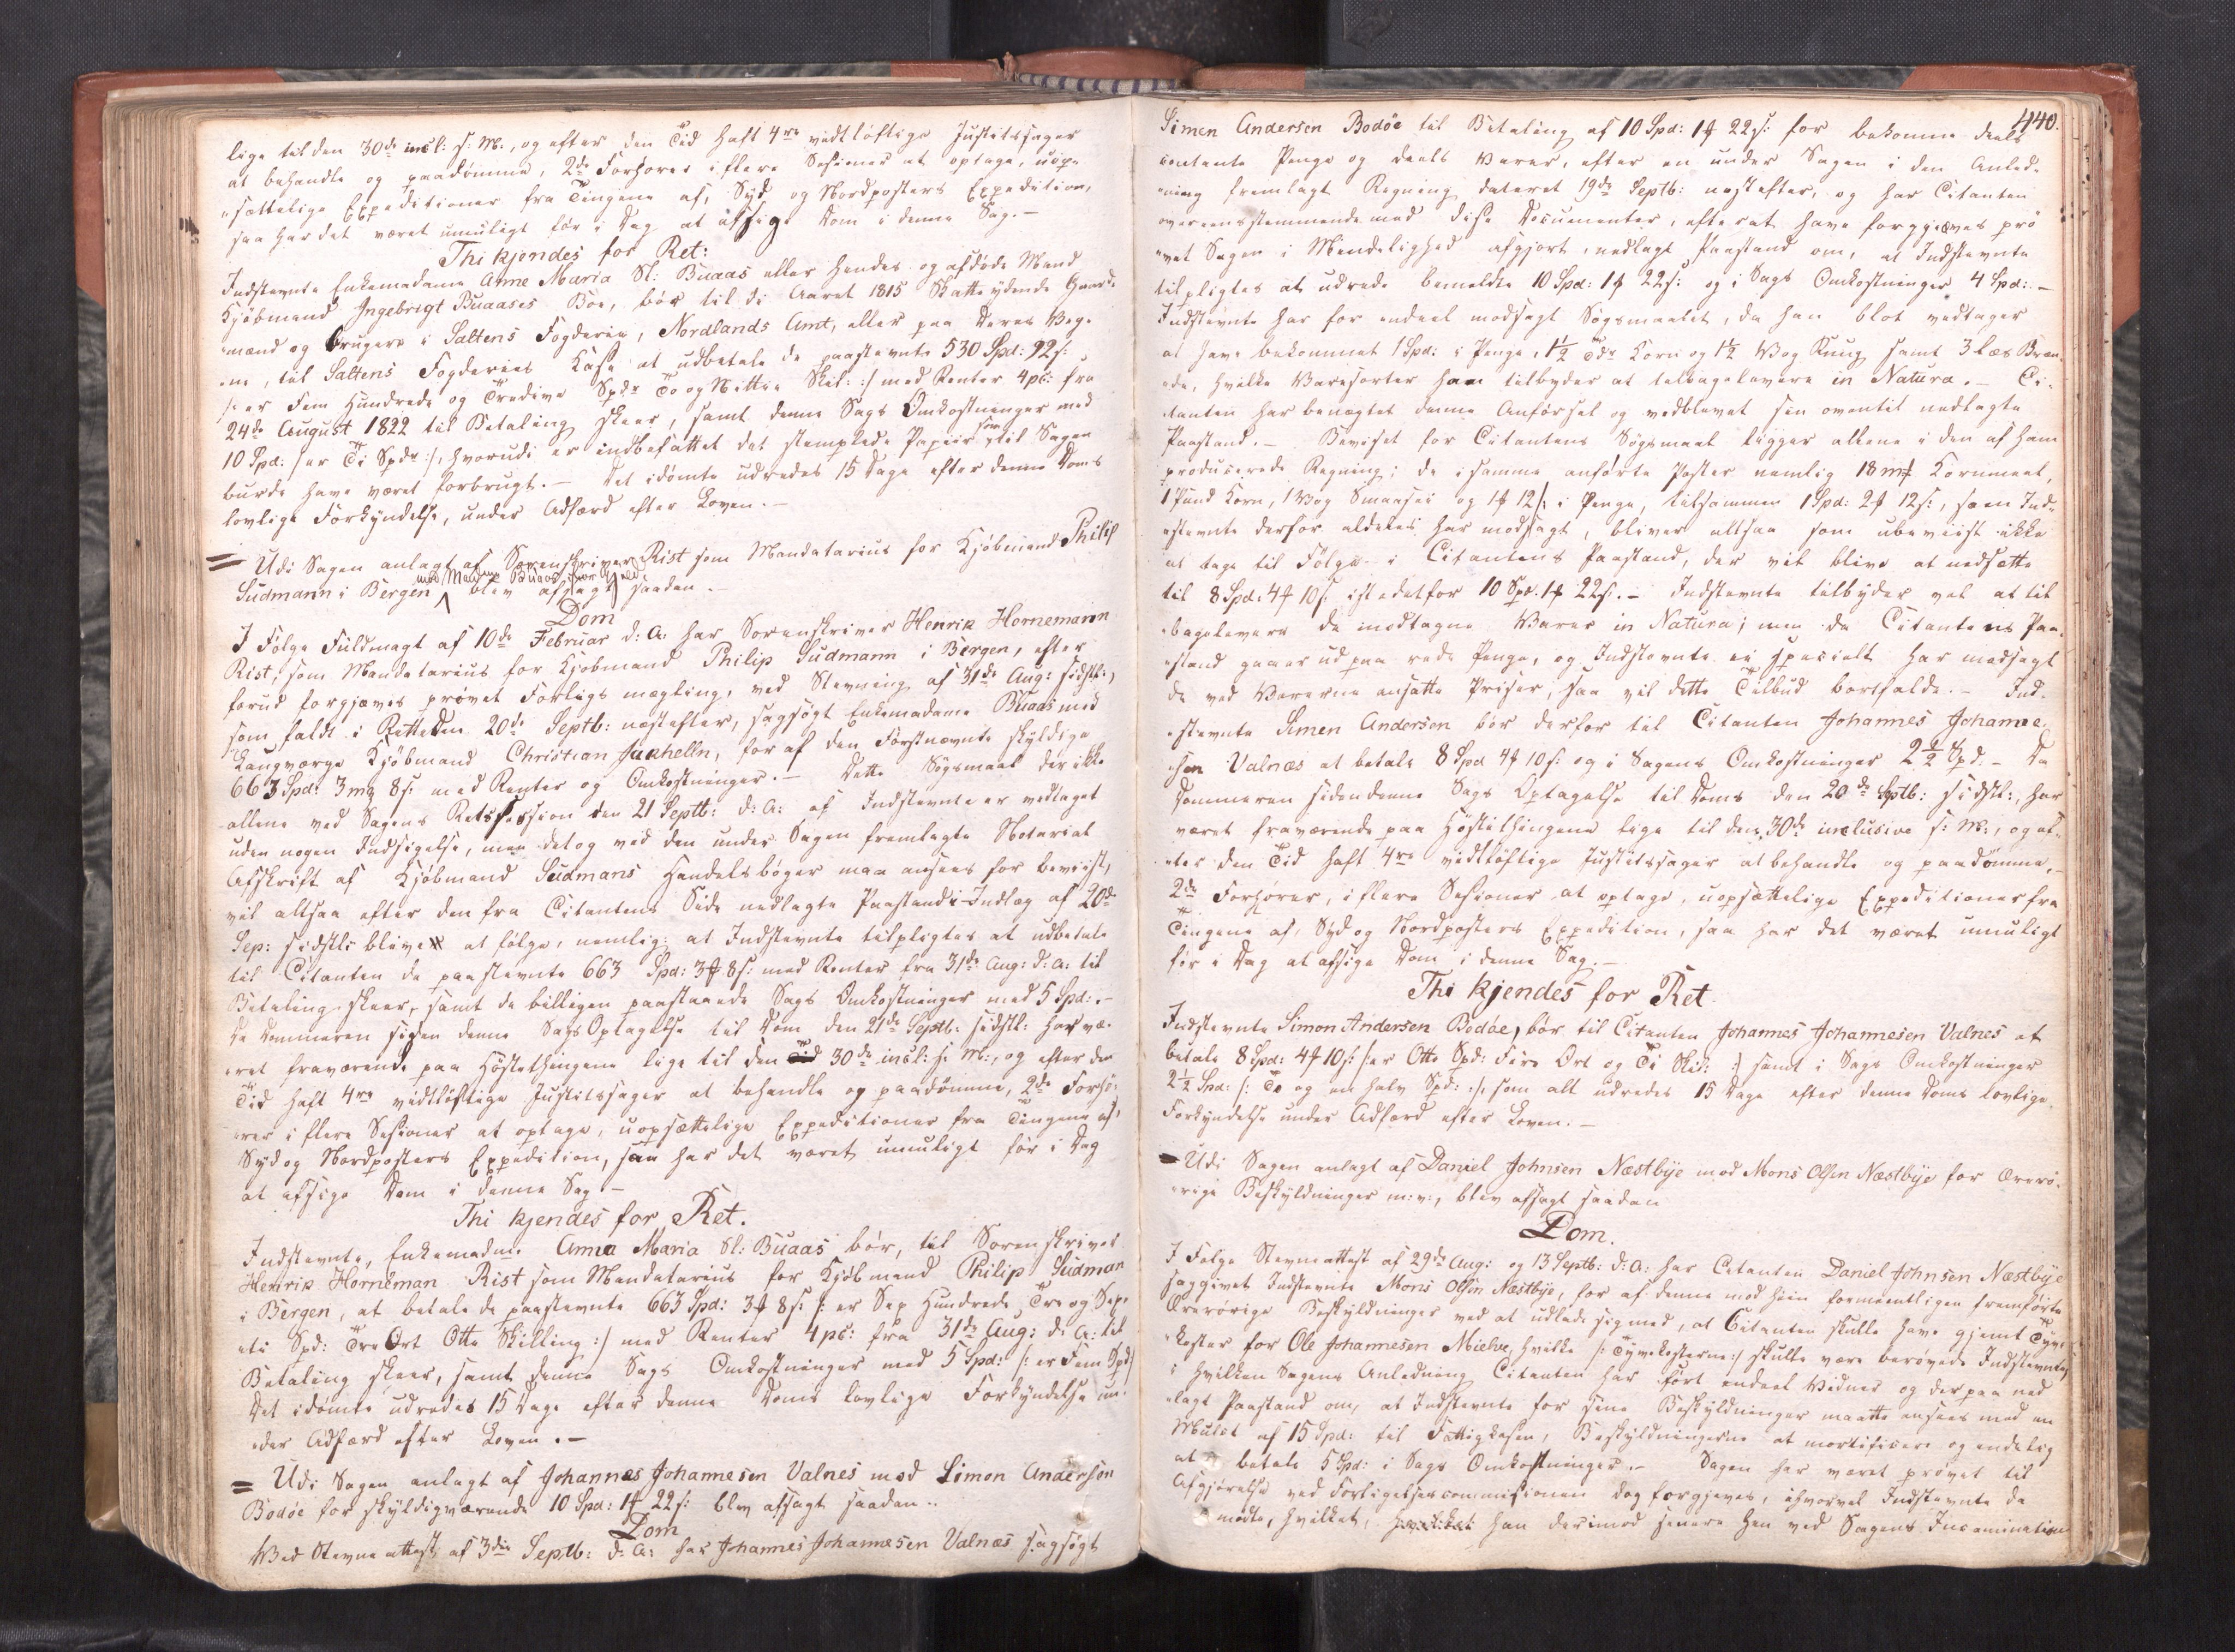 lige til den 30de incl: s: M:, og efter den Tid haft 4re vidtløftige Justitssager
at behandle og paadømme, 2de Forhører i flere Sesioner at optage, uop-
sættelige Expeditioner fra Tingene af, Syd og Nordposters Expedition,
saa har det været umuligt før i Dag at afsige Dom i denne Sag.—
Thi kjendes for Ret:
Indstevnte Enkemadame Anne Maria Sl: Buaas eller hendes og afdøde Mand
Kjøbmand Ingebrigt Buaases Boe, bør til de Aaret 1815 Skatteydende Gaard-
mænd og Brugere i Saltens Fogderie, Nordlands Amt, eller paa Deres Veg-
ne, til Saltens Fogderies Kasse at udbetale de paastevnte 530 Spd: 92 s:
/: er Fem Hundrede og Tredive Spdr To og Nittie Skil: :/ med Renter 4 pc: fra
24de August 1822 til Betaling skeer, samt denne Sags Omkostninger med
10 Spd: /: er Ti Spdr :/, hvorudi er indbefattet det stemplede Papiir som til Sagen
burde have været forbrugt.— Det idømte udredes 15 Dage efter denne Doms
lovlige Forkyndelse, under Adfærd efter Loven.—
= Udi Sagen anlagt af Sorenskriver Rist som Mandatarius for Kjøbmand Philip
Sudmann i Bergen mod Madame Buaas for Gjeld blev afsagt saadan.—
Dom
I Følge Fuldmagt af 10de Februar d: A: har Sorenskriver Henrik Hornemann
Rist, som Mandatarius for Kjøbmand Philip Sudmann i Bergen, efter
forud forgjæves prøvet Forligs mægling, ved Stevning af 31de Aug: sidstl:,
som faldt i Rette den 20de Septb: næstefter, sagsøgt Enkemadame Buaas med
Laugværge Kjøbmand Christian Jakhelln, for af den Førstnævnte skyldige
663 Spd: 3 mk 8 s: med Renter og Omkostninger.— Dette Søgsmaal der ikke
allene ved Sagens Retssession den 21 Septb: d: A: af Indstevnte er vedtaget
uden nogen Indsigelse, men det og ved den under Sagen fremlagte Notarial
Afskrift af Kjøbmand Sudmans Handelsbøger maa ansees for beviist,
vil altsaa efter den fra Citantens Side nedlagte Paastand i Indlæg af 20de
Sep: sidstl: blive at følge, nemlig: at Indstevnte tilpligtes at udbetale
til Citanten de paastevnte 663 Spd: 3 ₰ 8 s: med Renter fra 31de Aug: d: A: til
Betaling skeer, samt de billigen paastaaede Sags Omkostninger med 5 Spd:.—
Da Dommeren siden denne Sags Optagelse til Dom den 21de Septb: sidstl: har væ-
ret fraværende paa Høstethingene lige til den Tid 30de incl: s: M:, og efter den
Tid haft 4re vidtløftige Justitssager at behandle og paadømme, 2de Forhø-
rer i flere Sesioner at optage, uopsættelige Expeditioner fra Tingene af,
Syd og Nordposters Expedition, saa har det været umuligt før i Dag
at afsige Dom i denne Sag.—
Thi kjendes for Ret.
Indstevnte, Enkemadme Anna Maria Sl: Buaas bør, til Sorenskriver
Henrik Horneman Rist som Mandatarius for Kjøbmand Philip Sudman
i Bergen, at betale de paastevnte 663 Spd: 3 ₰ 8 s: /: er Sex Hundrede, Tre og Sex-
ti Spd: Tre Ort Otte Skilling :/ med Renter 4 pc: fra 31de Aug: d: A: til
Betaling skeer, samt denne Sags Omkostninger med 5 Spd: /: er Fem Spd:/
Det idømte udredes 15 Dage efter denne Doms lovlige Forkyndelse un-
der Adfærd efter Loven.—
= Udi Sagen anlagt af Johannes Johannesen Valnes mod Simon Andersen
Bodøe for skyldigværende 10 Spd: 1 ₰ 22 s: blev afsagt saadan..
Dom
Ved Stevne attest af 3die Septb: d: A: har Johannes Johannesen Valnæs sagsøgt
440.
Simen Andersen Bodøe til Betaling af 10 Spd: 1 ₰ 22 s: for bekomne deels
contante Penge og deels Varer, efter en under Sagen i den Anled-
ning fremlagt Regning dateret 19de Septb: næstefter, og har Citanten
overensstemmende med disse Documenter, efterat have forgjæves prø-
vet Sagen i Mindelighed afgjort, nedlagt Paastand om, at Indstevnte
tilpligtes at udrede bemeldte 10 Spd: 1 ₰ 22 s: og i Sags Omkostninger 4 Spd:.—
Indstevnte har for endeel modsagt Søgsmaalet, da han blot vedtager
at have bekommet 1 Spd: i Penge, 1½ Tdr Korn og 1½ Vog Rug samt 3 læs Bræn-
de, hvilke Varesorter han tilbyder at tilbagelevere in Natura.— Ci-
tanten har benægtet denne Anførsel og vedblevet sin oventil nedlagte
Paastand.— Beviset for Citantens Søgsmaal ligger allene i den af ham
producerede Regning; de i samme anførte Poster nemlig 18 mk Kornmeel,
1 Pund Korn, 1 Vog Smaasei og 1 ₰ 12 s: i Penge, tilsammen 1 Spd: 2 ₰ 12 s:, som Ind-
stevnte derfor aldeles har modsagt, bliver altsaa som ubeviist ikke
at tage til Følge i Citantens Paastand, der vil blive at nedsætte
til 8 Spd: 4 ₰ 10 s: istedetfor 10 Spd: 1 ₰ 22 s:.— Indstevnte tilbyder vel at til-
bagelevere de modtagne Varer in Natura; men da Citantens Paa-
stand gaaer ud paa rede Penge, og Indstevnte ei specielt har modsagt
de ved Varerne ansatte Priser, saa vil dette Tilbud bortfalde.— Ind-
stevnte Simen Andersen bør derfor til Citanten Johannes Johanne-
sen Valnæs at betale 8 Spd 4 ₰ 10 s: og i Sagens Omkostninger 2½ Spd.— Da
Dommeren siden denne Sags Optagelse til Doms den 20de Septb: sidstl:, har
været fraværende paa Høstethingene lige til den 30de inclusive s: M:, og ef-
ter den Tid haft 4re vidtløftige Justitssager at behandle og paadømme,—
2de Forhører, i flere Sesioner at optage, uopsættelige Expeditioner fra
Tingene af, Syd og Nordposters Expedition, saa har det været umuligt
før i Dag at afsige Dom i denne Sag.—
Thi kjendes for Ret.
Indstevnte Simon Andersen Bodøe, bør til Citanten Johannes Johannesen Valnes at
betale 8 Spd: 4 ₰ 10 s: /: er Otte Spd: Fire Ort og Ti Skil: :/ samt i Sags Omkostninger
2½ Spd: /: To og en halv Spd: :/ som alt udredes 15 Dage efter denne Doms lovlige
Forkyndelse under Adfærd efter Loven.—
= Udi Sagen anlagt af Daniel Johnsen Næstbye mod Mons Olsen Næstbye for Ærerø-
rige Beskyldninger m: v:, blev afsagt saadan
Dom.
I Følge Stevneattest af 29de Aug: og 13 Septb: d: A: har Citanten Daniel Johnsen Næstbye
saggivet Indstevnte Mons Olsen Næstbye, for af denne mod hiin formeentligen fremførte
Ærerørige Beskyldninger ved at udlade sig med, at Citanten skulle have gjemt Tyve-
koster for Ole Johannesen Mielve, hvilke /: Tyvekosterne :/ skulle være berøvede Indstevnte,
i hvilken Sagens Anledning Citanten har ført endeel Vidner og derpaa ned-
lagt Paastand om, at Indstevnte for sine Beskyldninger maatte ansees med en
Mulct af 15 Spd: til Fattigkassen, Beskyldningerne at mortificere og endelig
at betale 5 Spd: i Sags Omkostninger.— Sagen har været prøvet til
Afgjørelse ved Forligelsescommisionen dog forgjeves, ihvorvel Indstevnte da
mødte, hvilket, han derimod senere hen ved Sagens Incamination